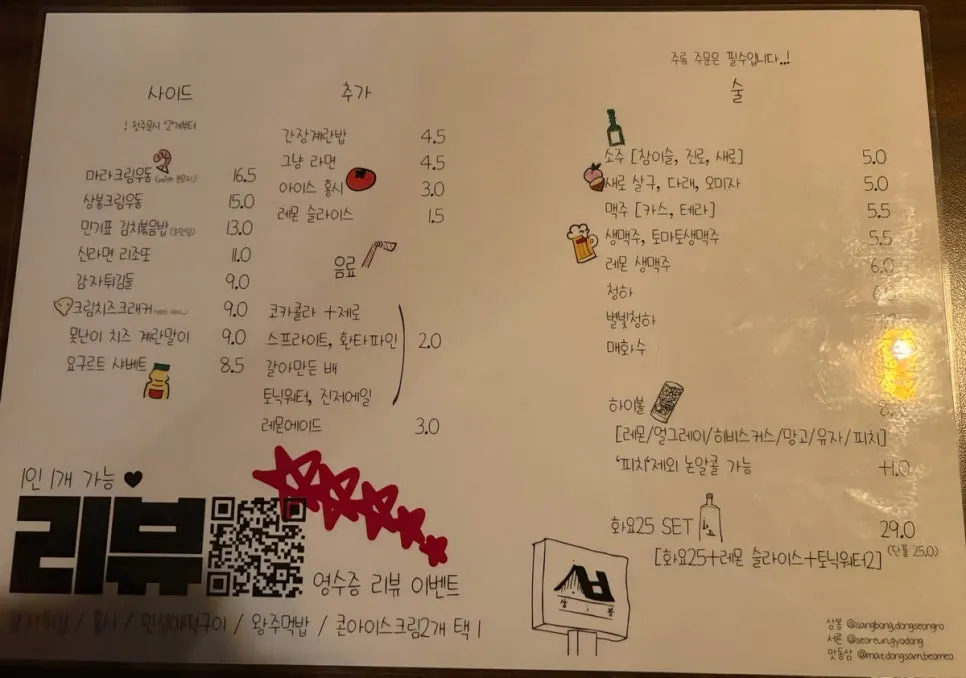 사이드
! 첫주문시 '2'개부터
마라크림우동 16.5
상봉크림우동 15.0
민기표 김치볶음밥 13.0
신라면 리조또 11.0
감자튀김들 9.0
크림치즈크래커 9.0
못난이 치즈 계란말이 9.0
요구르트 샤베트 8.5
추가
간장계란밥 4.5
그냥 라면 4.5
아이스 홍시 3.0
레몬 슬라이스 1.5
음료
코카콜라 +제로
스프라이트, 환타파인 2.0
갈아만든 배
토닉워터, 진저에일
레몬에이드 3.0
1인 1개 가능 ♥
리뷰
영수증 리뷰 이벤트
/ 홍시 / 떡구이 / 왕주먹밥 / 콘아이스크림2개 택 1
주류 주문은 필수입니다..!
술
소주 [참이슬, 진로, 새로] 5.0
새로 살구, 다래, 오미자 5.0
맥주 [카스, 테라] 5.5
생맥주, 토마토생맥주 5.5
레몬 생맥주 6.0
청하
별빛청하
매화수
하이볼
[레몬/얼그레이/히비스커스/망고/유자/피치]
'피치'제외 논알콜 가능 +1.0
화요25 SET 29.0
(단품 25.0)
[화요25+레몬 슬라이스+토닉워터2]
상봉
상봉 @sangbong.dongseongro
서른 @seoreun.gyodong
맛동삼 @mat.dongsam.beomeo